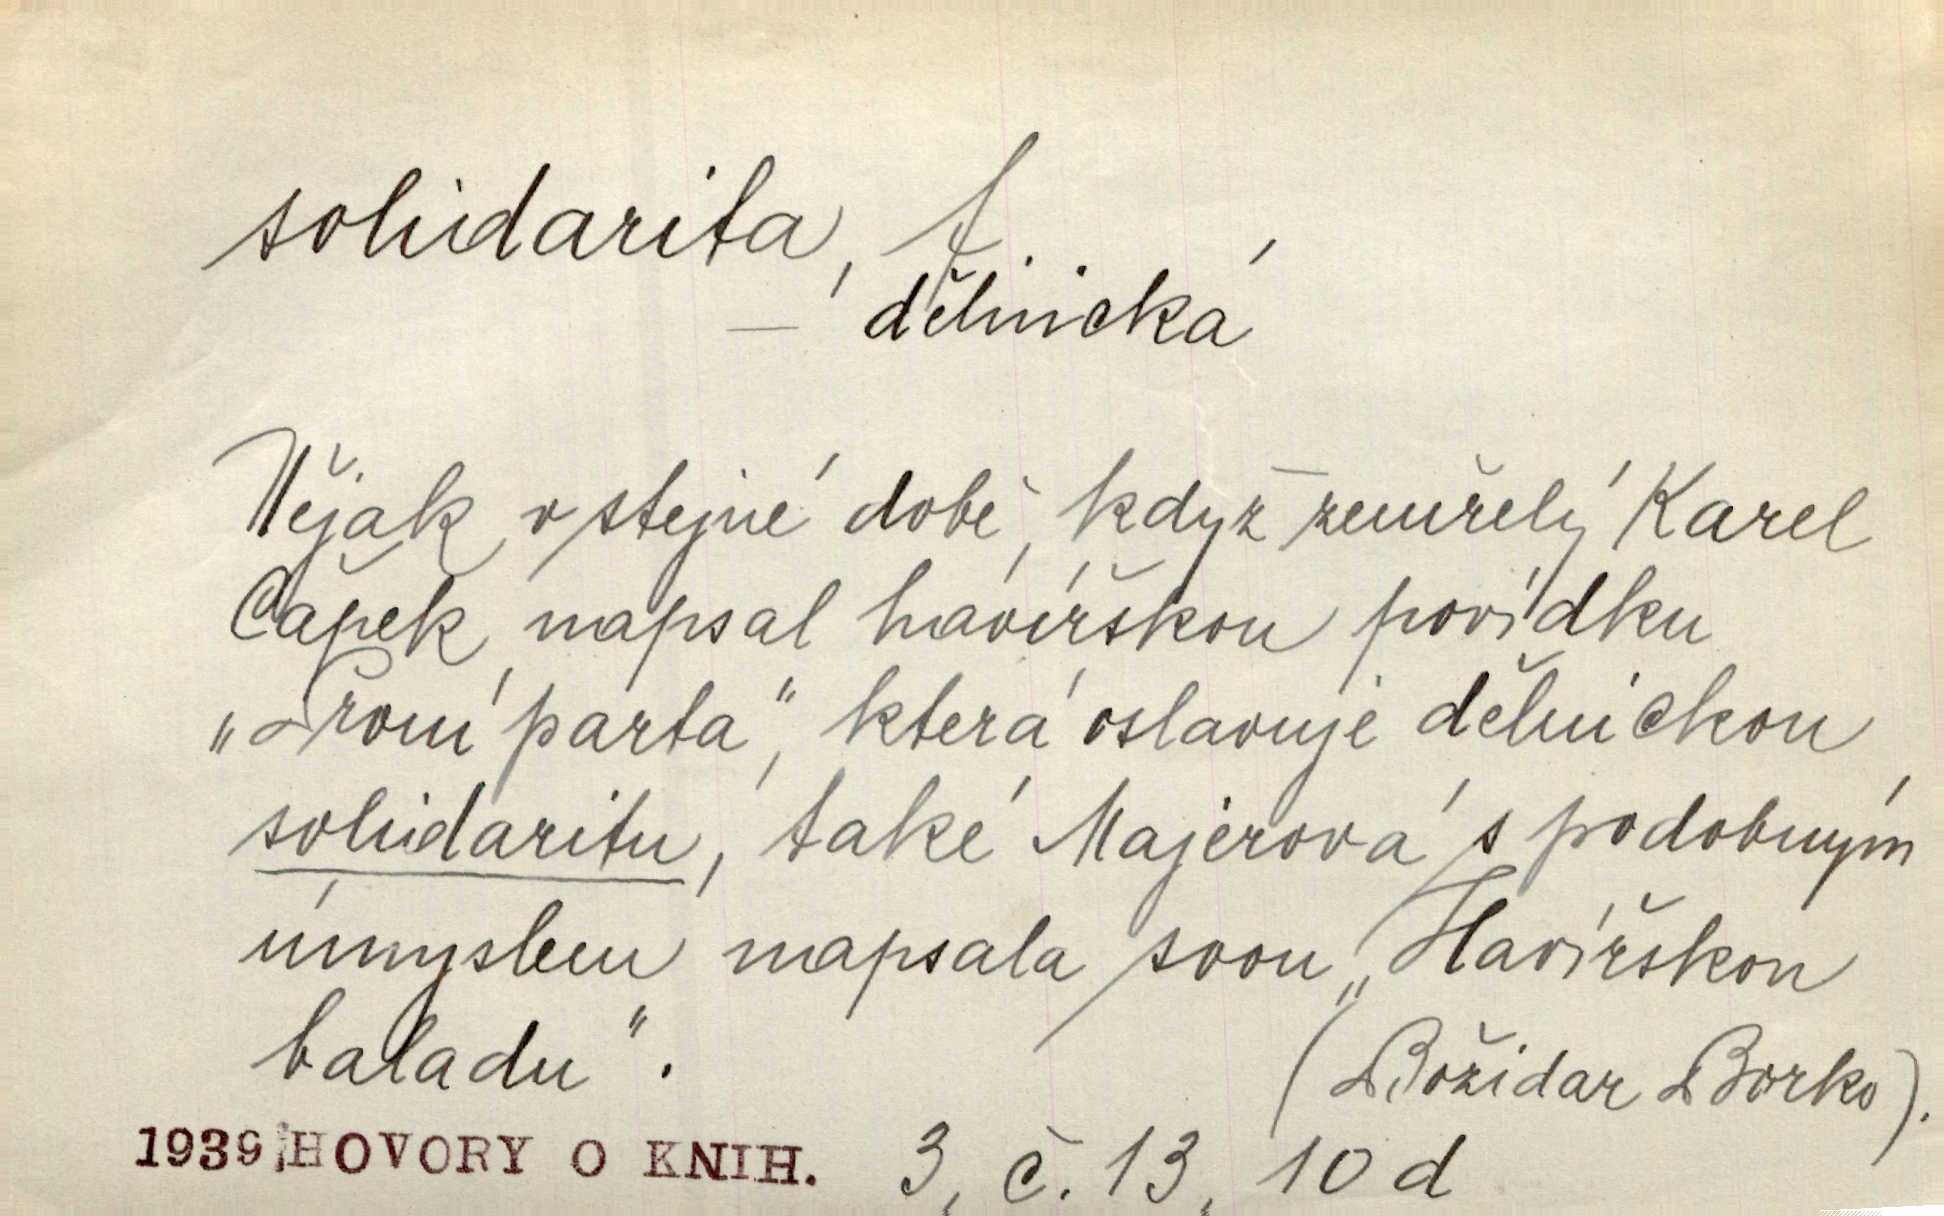 solidarita, f.
— dělnická
Nějak v stejné době, když zemřelý Karel
Čapek napsal havířskou povídku
„První parta“, která oslavuje dělnickou
solidaritu, také Majerová s podobným
úmyslem napsala svou „Havířskou
baladu“.
(Božidar Borko).
1939 HOVORY O KNIH. 3, č. 13, 10 d